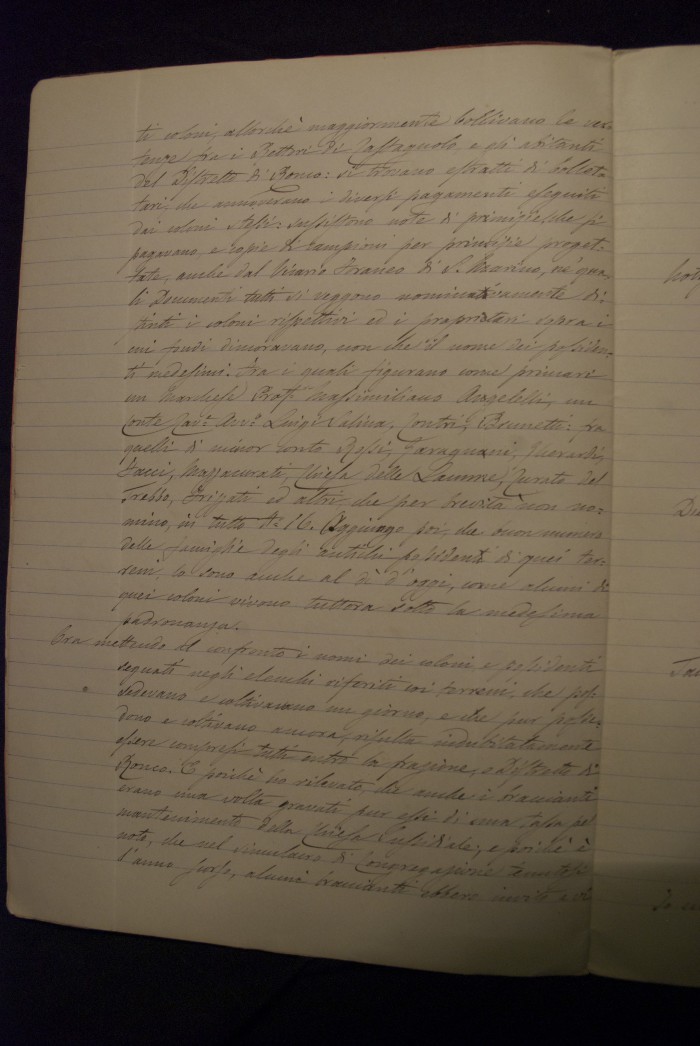 ti coloni, allorchè maggiormente bollivano le ver-
tenze fra i Rettori di Castagnolo e gli abitanti
del Distretto di Ronco: si trovano estratti di bolletta
tari, che annoverano i diversi pagamenti eseguiti
dai coloni stessi: sussistono note di primizie, che si
pagavano, e copie di campioni per primizie proget-
tate, anche dal Vicario Franco di S. Marino, ne' qua-
li Documenti tutti si veggono nominativamente di-
stinti i coloni rispettivi ed i proprietari sopra i
cui fondi dimoravano, non che il nome dei possiden-
ti medesimi: fra i quali figurano come primari
un Marchese Prof. Massimiliano Angelelli, un
Conte Cav. Avv. Luigi Salina, Contri, Brunetti: fra
quelli di minor conto Rossi, Gherardi,
Mazzacurati, Chiesa delle Lamme, Curato del
Trebbo, Frizzati ed altri che per brevità non no-
mino, in tutto N. 16. Aggiungo poi, che buon numero
delle famiglie degli antichi possidenti di quei ter-
reni, lo sono anche al dì d'oggi, come alcuni di
quei coloni vivono tuttora sotto la medesima
padronanza.
Ora mettendo al confronto i nomi dei coloni e possidenti
segnati negli elenchi riferiti coi terreni, che pos-
sedevano e coltivavano un giorno, e che pur posse-
dono e coltivano ancora, risulta indubitatamente
essere compresi tutti entro la frazione, o Distretto di
Ronco. E poichè ho rilevato, che anche i braccianti
erano una volta gravati pur essi di una tassa pel
mantenimento della Chiesa Sussidiale; e poichè è
noto, che nel simulacro di Congregazione tenutosi
l'anno scorso, alcuni braccianti ebbero invito e vi